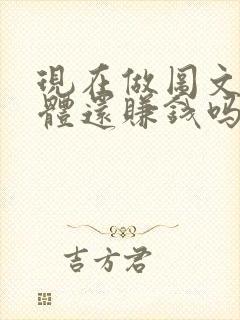 現在做图文
體還賺錢吗
吉方君